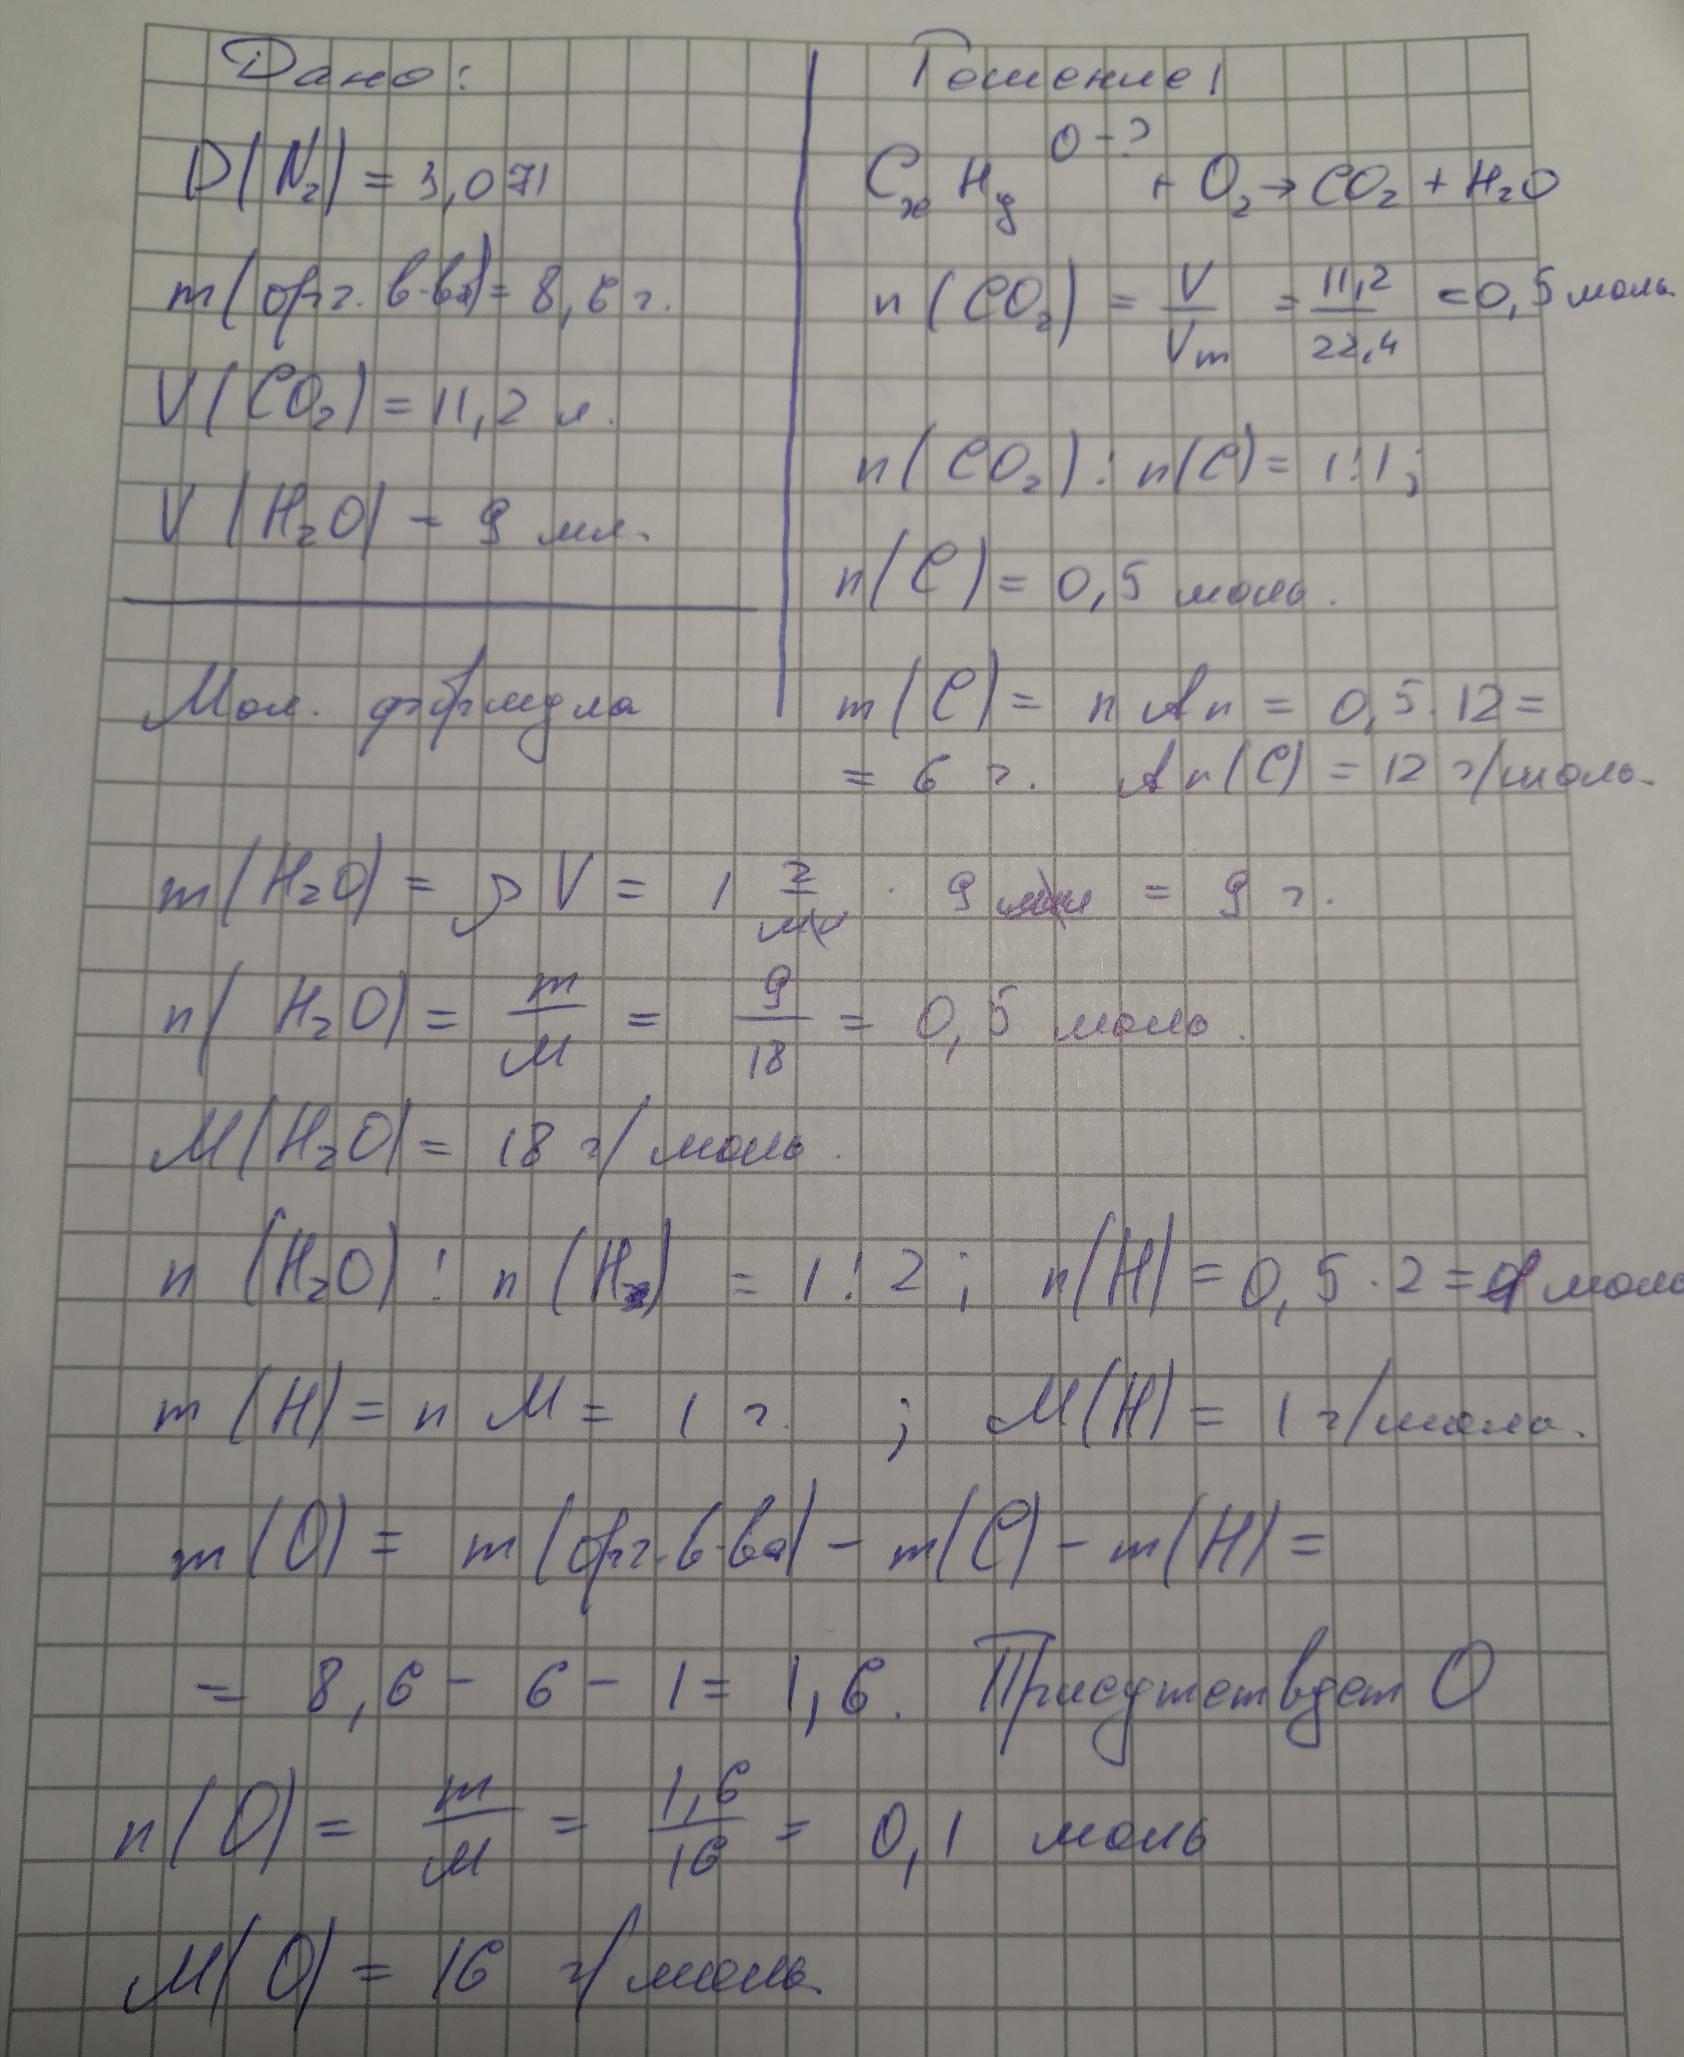 Дано:
D(N₂) = 3,071
m(орг. в-ва) = 8,6 г.
V(CO₂) = 11,2 л.
V(H₂O) = 9 мл.
Мол. формула
Решение:
CₓHᵧ O-? + O₂ → CO₂ + H₂O
n(CO₂) = V/Vm = 11,2/22,4 = 0,5 моль
n(CO₂) : n(C) = 1:1;
n(C) = 0,5 моль.
m(C) = n Ar = 0,5 · 12 =
= 6 г. Ar(C) = 12 г/моль.
m(H₂O) = ρ V = 1 г/мл · 9 мл = 9 г.
n(H₂O) = m/M = 9/18 = 0,5 моль.
M(H₂O) = 18 г/моль.
n(H₂O) : n(H) = 1:2; n(H) = 0,5 · 2 = 1 моль
m(H) = n M = 1 г. ; M(H) = 1 г/моль.
m(O) = m(орг. в-ва) - m(C) - m(H) =
= 8,6 - 6 - 1 = 1,6. Присутствует O
n(O) = m/M = 1,6/16 = 0,1 моль
M(O) = 16 г/моль